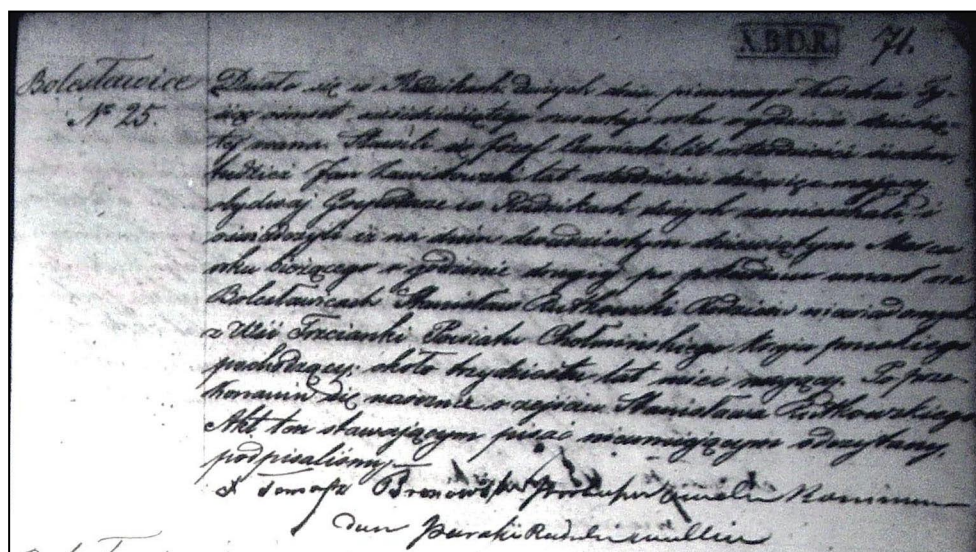 X.B.D.R. 71.
Bolesławice
№ 25.
Działo się w Radzikach dużych dnia pierwszego Kwietnia Ty-
siąc ośmset sześćdziesiątego roku o godzinie dziewią-
tej z rana. Stawili się Józef lat
tudzież Jan lat mający
obydwaj Gospodarze w Radzikach dużych zamieszkali, i
oświadczyli iż na dniu dwudziestym dziewiątym Marca
roku bieżącego o godzinie drugiej po południu umarł na
Bolesławicach Stanisław Rutkowski Rodziców niewiadomych
z Wsi Trzcianki Powiatu Chełmińskiego kraju pruskiego
pochodzący; około trzydziestu lat mieć mogący. Po prze-
konaniu się naocznie o zejściu Stanisława Rutkowskiego
Akt ten stawającym pisać nieumiejącym odczytany,
podpisaliśmy.
X Tomasz